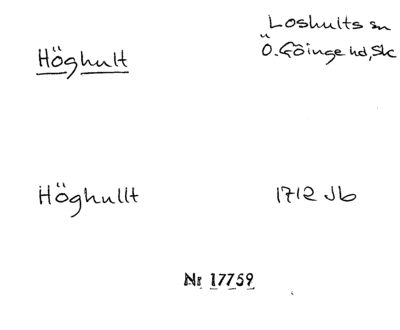 Höghult
Loshults sn
Ö. Göinge hd, Sk
Höghullt
1712 Jb
Nr 17759